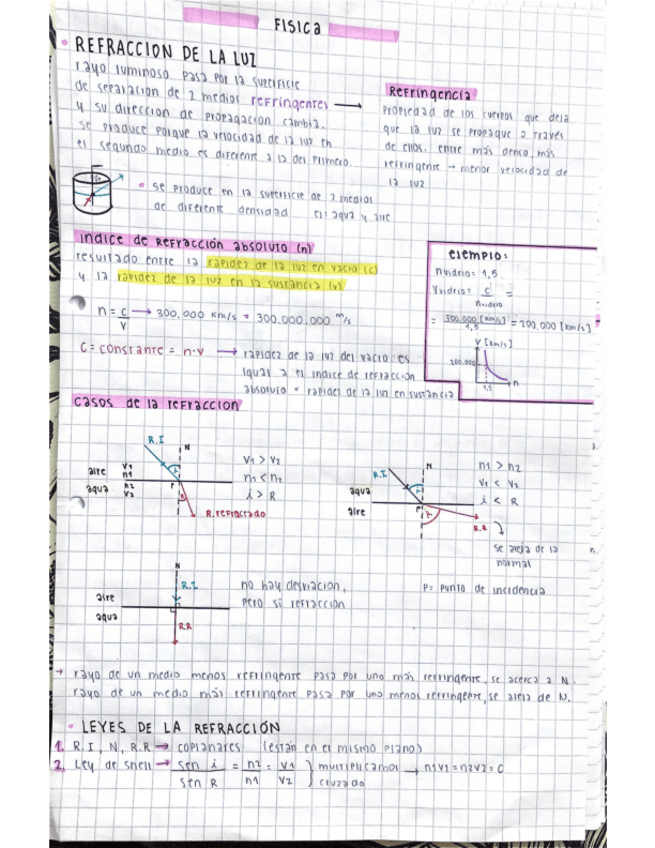 FISICA
• REFRACCION DE LA LUZ
rayo luminoso pasa por la superficie
de separacion de 2 medios refringentes →
y su direccion de propagacion cambia.
se produce porque la velocidad de la luz en
el segundo medio es diferente a la del primero.
Refringencia
propiedad de los cuerpos que deja
que la luz se propaque a través
de ellos. entre más denso, más
refringente → menor velocidad de
la luz
• se produce en la superficie de 2 medios
de diferente densidad ej: aqua y aire
indice de refracción absoluto (n)
resultado entre la rapidez de la luz en vacio (c)
y la rapidez de la luz en la sustancia (v)
n = c/v → 300.000 km/s = 300.000.000 m/s
C = constante = n·v → rapidez de la luz del vacio es
igual a el indice de refraccion
absoluto • rapidez de la luz en sustancia
ejemplo:
nvidrio: 1,5
Vvidrio = c/nvidrio =
= 300.000 [km/s]/1,5 = 200.000 [km/s]
V [km/s]
200.000
1,5
n
casos de la refraccion
R.I
N
aire
V1
n1
aqua
n2
V2
i
P
R
R.refractado
V1 > V2
n1 < n2
i > R
R.I
N
aqua
aire
i
P
R.R
n1 > n2
V1 < V2
i < R
se aleja de la
normal
N
R.I
aire
aqua
R.R
no hay desviacion,
pero si refracción
P= punto de incidencia
→ rayo de un medio menos refringente pasa por uno más refringente, se acerca a N.
rayo de un medio más refringente pasa por uno menos refringente, se aleja de N.
• LEYES DE LA REFRACCIÓN
1. R.I, N, R.R → coplanares (estan en el mismo plano)
2. Ley de Snell → sen i / sen R = n2/n1 = V1/V2 } multiplicamos cruzado → n1V1=n2V2=C